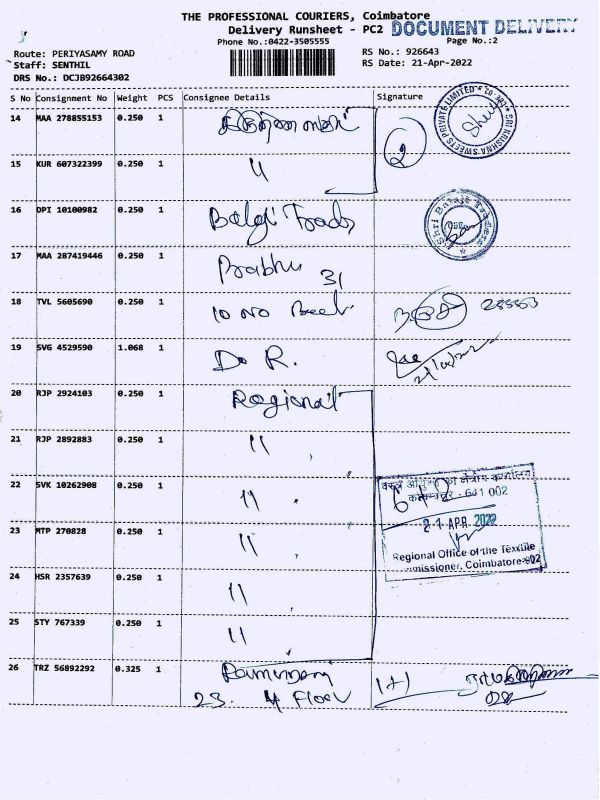 THE PROFESSIONAL COURIERS, Coimbatore
Delivery Runsheet - PC2 DOCUMENT DELIVERY
Phone No.:0422-3505555 Page No.:2
Route: PERIYASAMY ROAD RS No.: 926643
Staff: SENTHIL RS Date: 21-Apr-2022
DRS No.: DCJB92664302
S No Consignment No Weight PCS Consignee Details Signature
14 MAA 278855153 0.250 1
SRI KRISHNA SWEETS PRIVATE LIMITED
2
15 KUR 607322399 0.250 1 "
16 DPI 10100982 0.250 1 Balaji Traders
Shri Balaji Traders
17 MAA 287419446 0.250 1 Prabhu 31
18 TVL 5605690 0.250 1 10 No
19 SVG 4529590 1.068 1 Do R.
20 RJP 2924103 0.250 1 Regional
21 RJP 2892883 0.250 1 "
22 SVK 10262908 0.250 1 "
23 MTP 270828 0.250 1 "
24 HSR 2357639 0.250 1 "
25 STY 767339 0.250 1 "
- 641 002
21 APR 2022
Regional Office of the Textile
Commissioner, Coimbatore-02
26 TRZ 56892292 0.325 1
23. 4 Floor